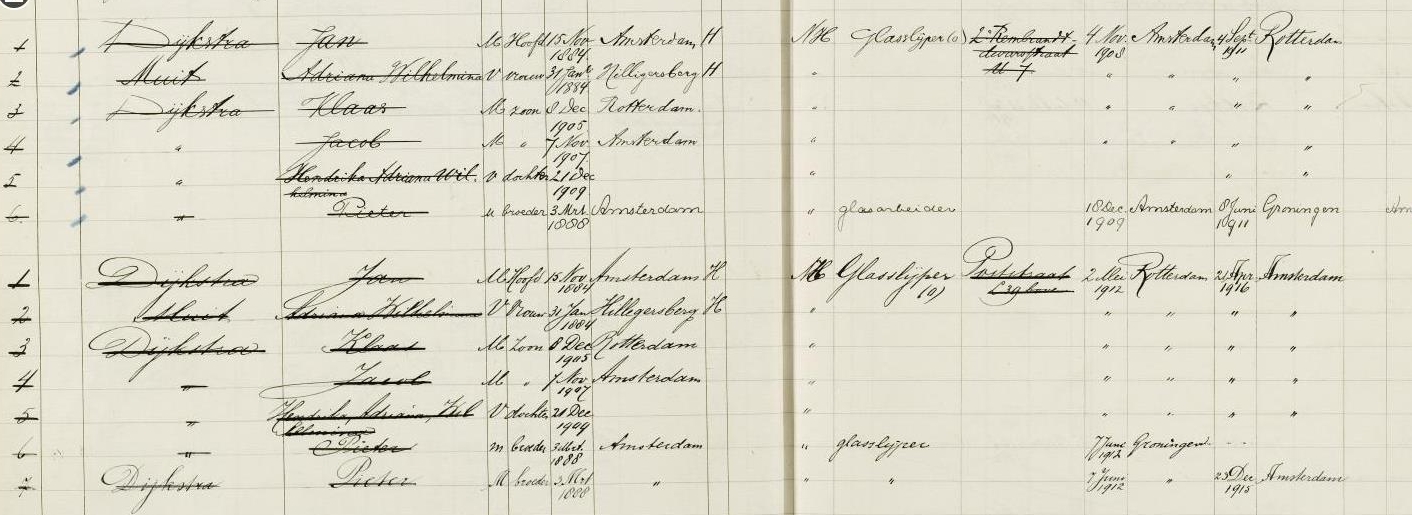 1 Dijkstra Jan M Hoofd 15 Nov 1884 Amsterdam H NH Glasslijper (o) 2e Rembrandt dwarsstraat 4 Nov. 1908 Amsterdam 4 Sept 1911 Rotterdam
2 Muit Adriana Wilhelmina V vrouw 31 Jan 1884 Hilligersberg H " " " " "
3 Dijkstra Klaas M zoon 8 Dec 1905 Rotterdam. " " " " "
4 " Jacob M " 7 Nov. 1907 Amsterdam " " " " "
5 " Hendrika Adriana Wilhelmina V dochter 21 Dec 1909 " " "
6. " Pieter M broeder 3 Mrt. 1888 Amsterdam " glasarbeider 18 Dec. 1909 Amsterdam 8 Juni 1911 Groningen
1 Dijkstra Jan M Hoofd 15 Nov 1884 Amsterdam H NH Glasslijper (o) Poststraat 2 Mei 1912 Rotterdam 21 Apr 1916 Amsterdam
2 Muit Adriana Wilhelmina V Vrouw 31 Jan 1884 Hillegersberg H " " " " "
3 Dijkstra Klaas M Zoon 8 Dec 1905 Rotterdam " " " " "
4 " Jacob M " 7 Nov 1907 Amsterdam " " " " "
5 " Hendrika Adriana Wilhelmina V dochter 21 Dec 1909 " " " " "
6 " Pieter m broeder 3 Mrt. 1888 Amsterdam " glasslijper 7 Juni 1912 Groningen - -
7 Dijkstra Pieter M broeder 3 Mrt 1888 " " " 7 Juni 1912 " 23 Dec 1915 Amsterdam